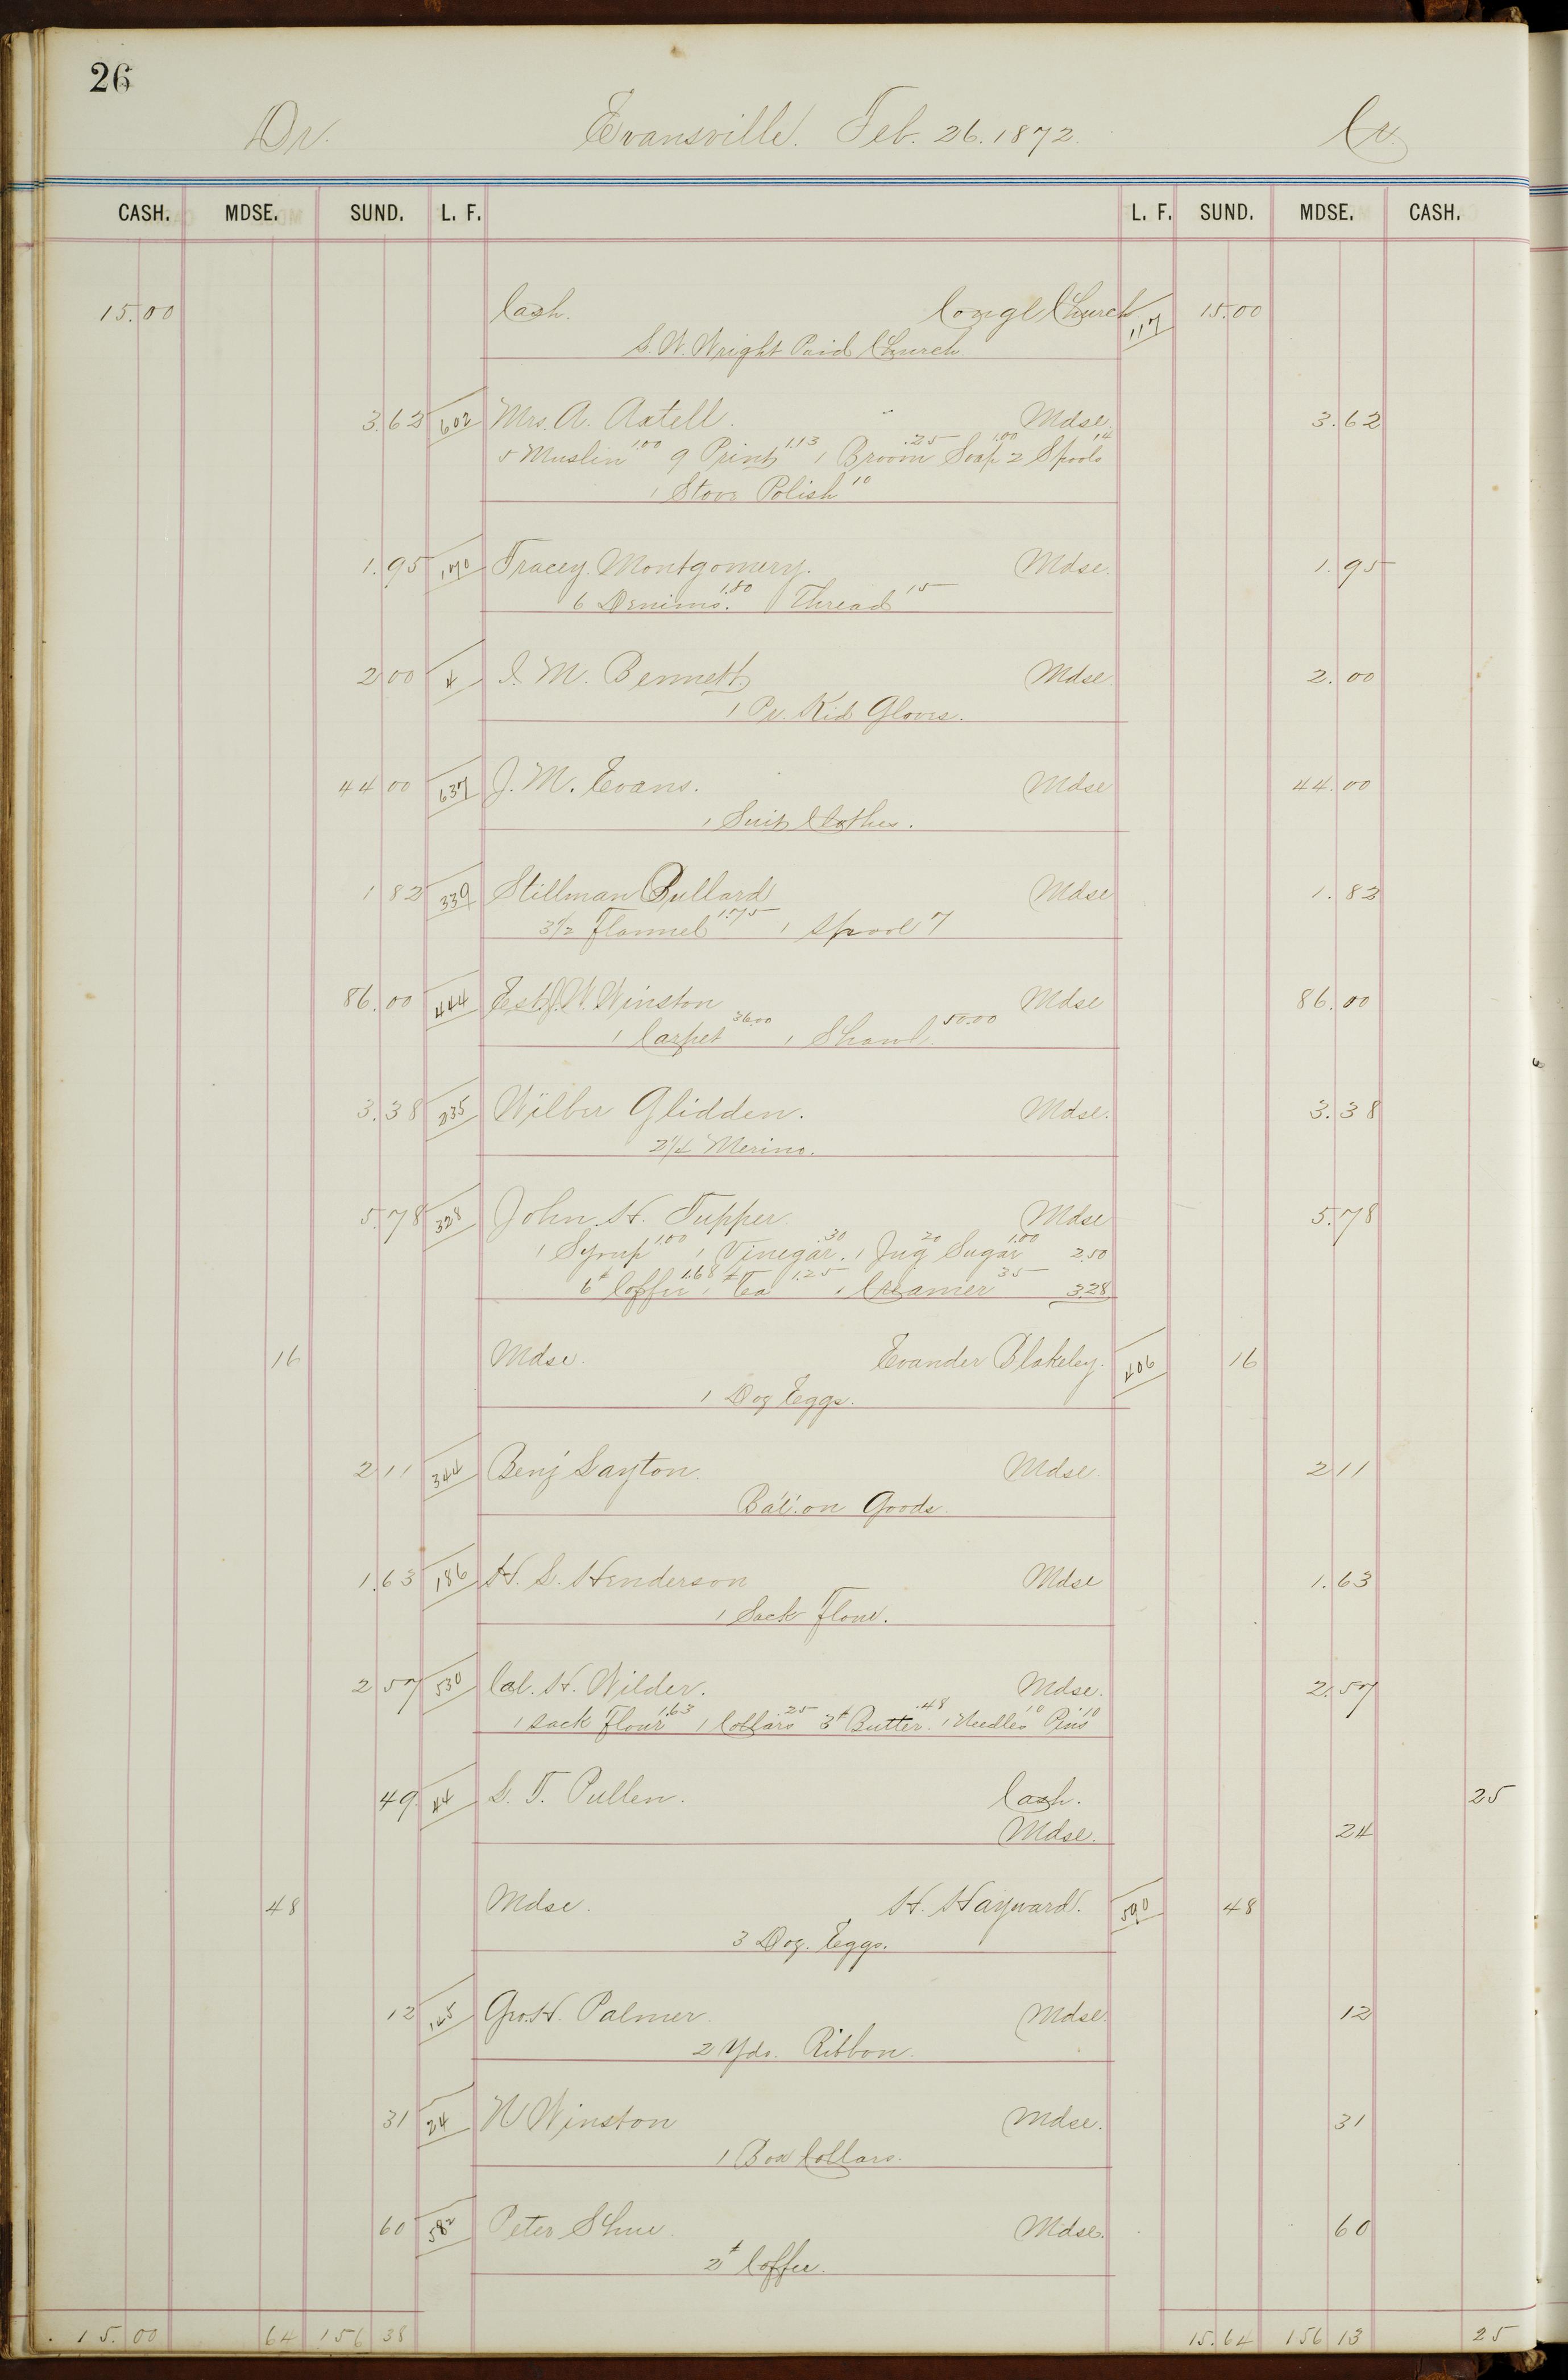 26
Dr. Evansville. Feb. 26. 1872. Cr.
CASH. MDSE. SUND. L. F. L. F. SUND. MDSE. CASH.
15.00 Cash. Congl Church 117 15.00
S. W. Wright Paid Church
3.62 602 Mrs. A. Axtell. Mdse. 3.62
5 Muslin 1.00 9 Print 1.13 1 Broom .25 Soap 1.00 2 Spools 14
1 Stove Polish 10
1.95 170 Tracey Montgomery. Mdse. 1.95
6 Denims. 1.80 Thread 15
2 00 4 I. M. Bennett Mdse. 2.00
1 Pr. Kid Gloves.
44 00 637 J. M. Evans. Mdse 44.00
1 Suit Clothes.
1 82 339 Stillman Bullard Mdse 1.82
3 1/2 Flannel 1.75 1 Spool 7
86.00 444 Est. J. W. Winston Mdse 86.00
1 Carpet 36.00 1 Shawl. 50.00
3.38 235 Wilber Glidden. Mdse. 3.38
2 1/4 Merino.
5.78 328 John H. Tupper. Mdse 5.78
1 Syrup 1.00 1 Vinegar .30 1 Jug 20 Sugar 1.00 2.50
6# Coffee 1.68 1# Tea 1.25 1 Creamer 35 3.28
16 Mdse. Evander Blakeley. 406 16
1 Doz Eggs.
2 11 344 Benj Layton. Mdse. 2 11
Bal. on Goods
1.63 186 H. L. Henderson Mdse 1.63
1 Sack Flour.
2 57 530 Cal. H. Wilder. Mdse. 2.57
1 Sack Flour 1.63 1 Collars .25 3# Butter .48 1 Needles 10 Pins 10
49 44 L. T. Pullen. Cash. 25
Mdse. 24
48 Mdse. H. Hayward. 590 48
3 Doz. Eggs.
12 145 Geo. H. Palmer Mdse. 12
2 Yds. Ribbon.
31 24 N Winston Mdse. 31
1 Box Collars.
60 582 Peter Shue Mdse. 60
2# Coffee.
15.00 64 156 38 15.64 156 13 25